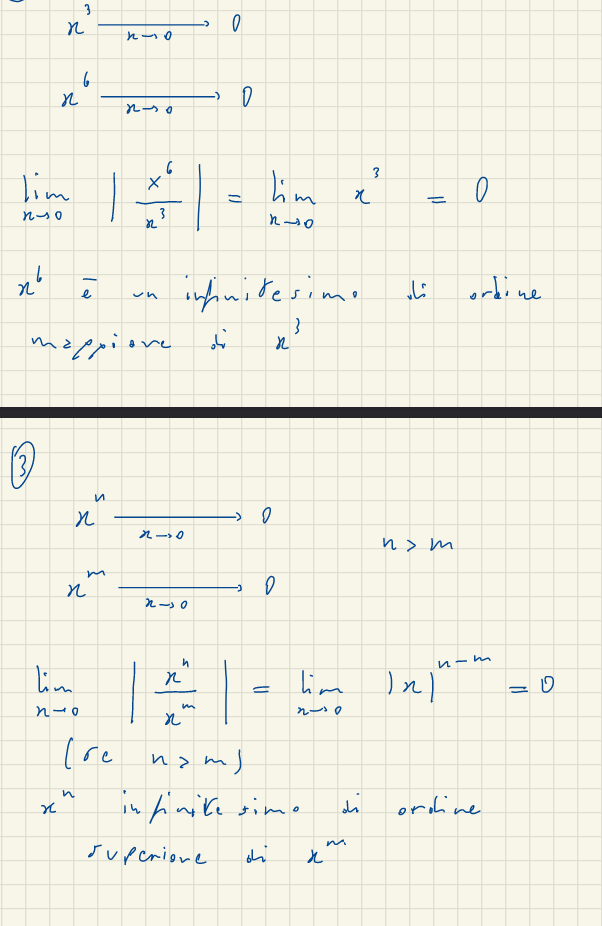 x³ ⟶ 0
x→0
x⁶ ⟶ 0
x→0
lim x→0 | x⁶ / x³ | = lim x→0 x³ = 0
x⁶ è un infinitesimo di ordine
maggiore di x³
③
xⁿ ⟶ 0
x→0
n > m
xᵐ ⟶ 0
x→0
lim x→0 | xⁿ / xᵐ | = lim x→0 |x|ⁿ⁻ᵐ = 0
(se n > m)
xⁿ infinitesimo di ordine
superiore di xᵐ